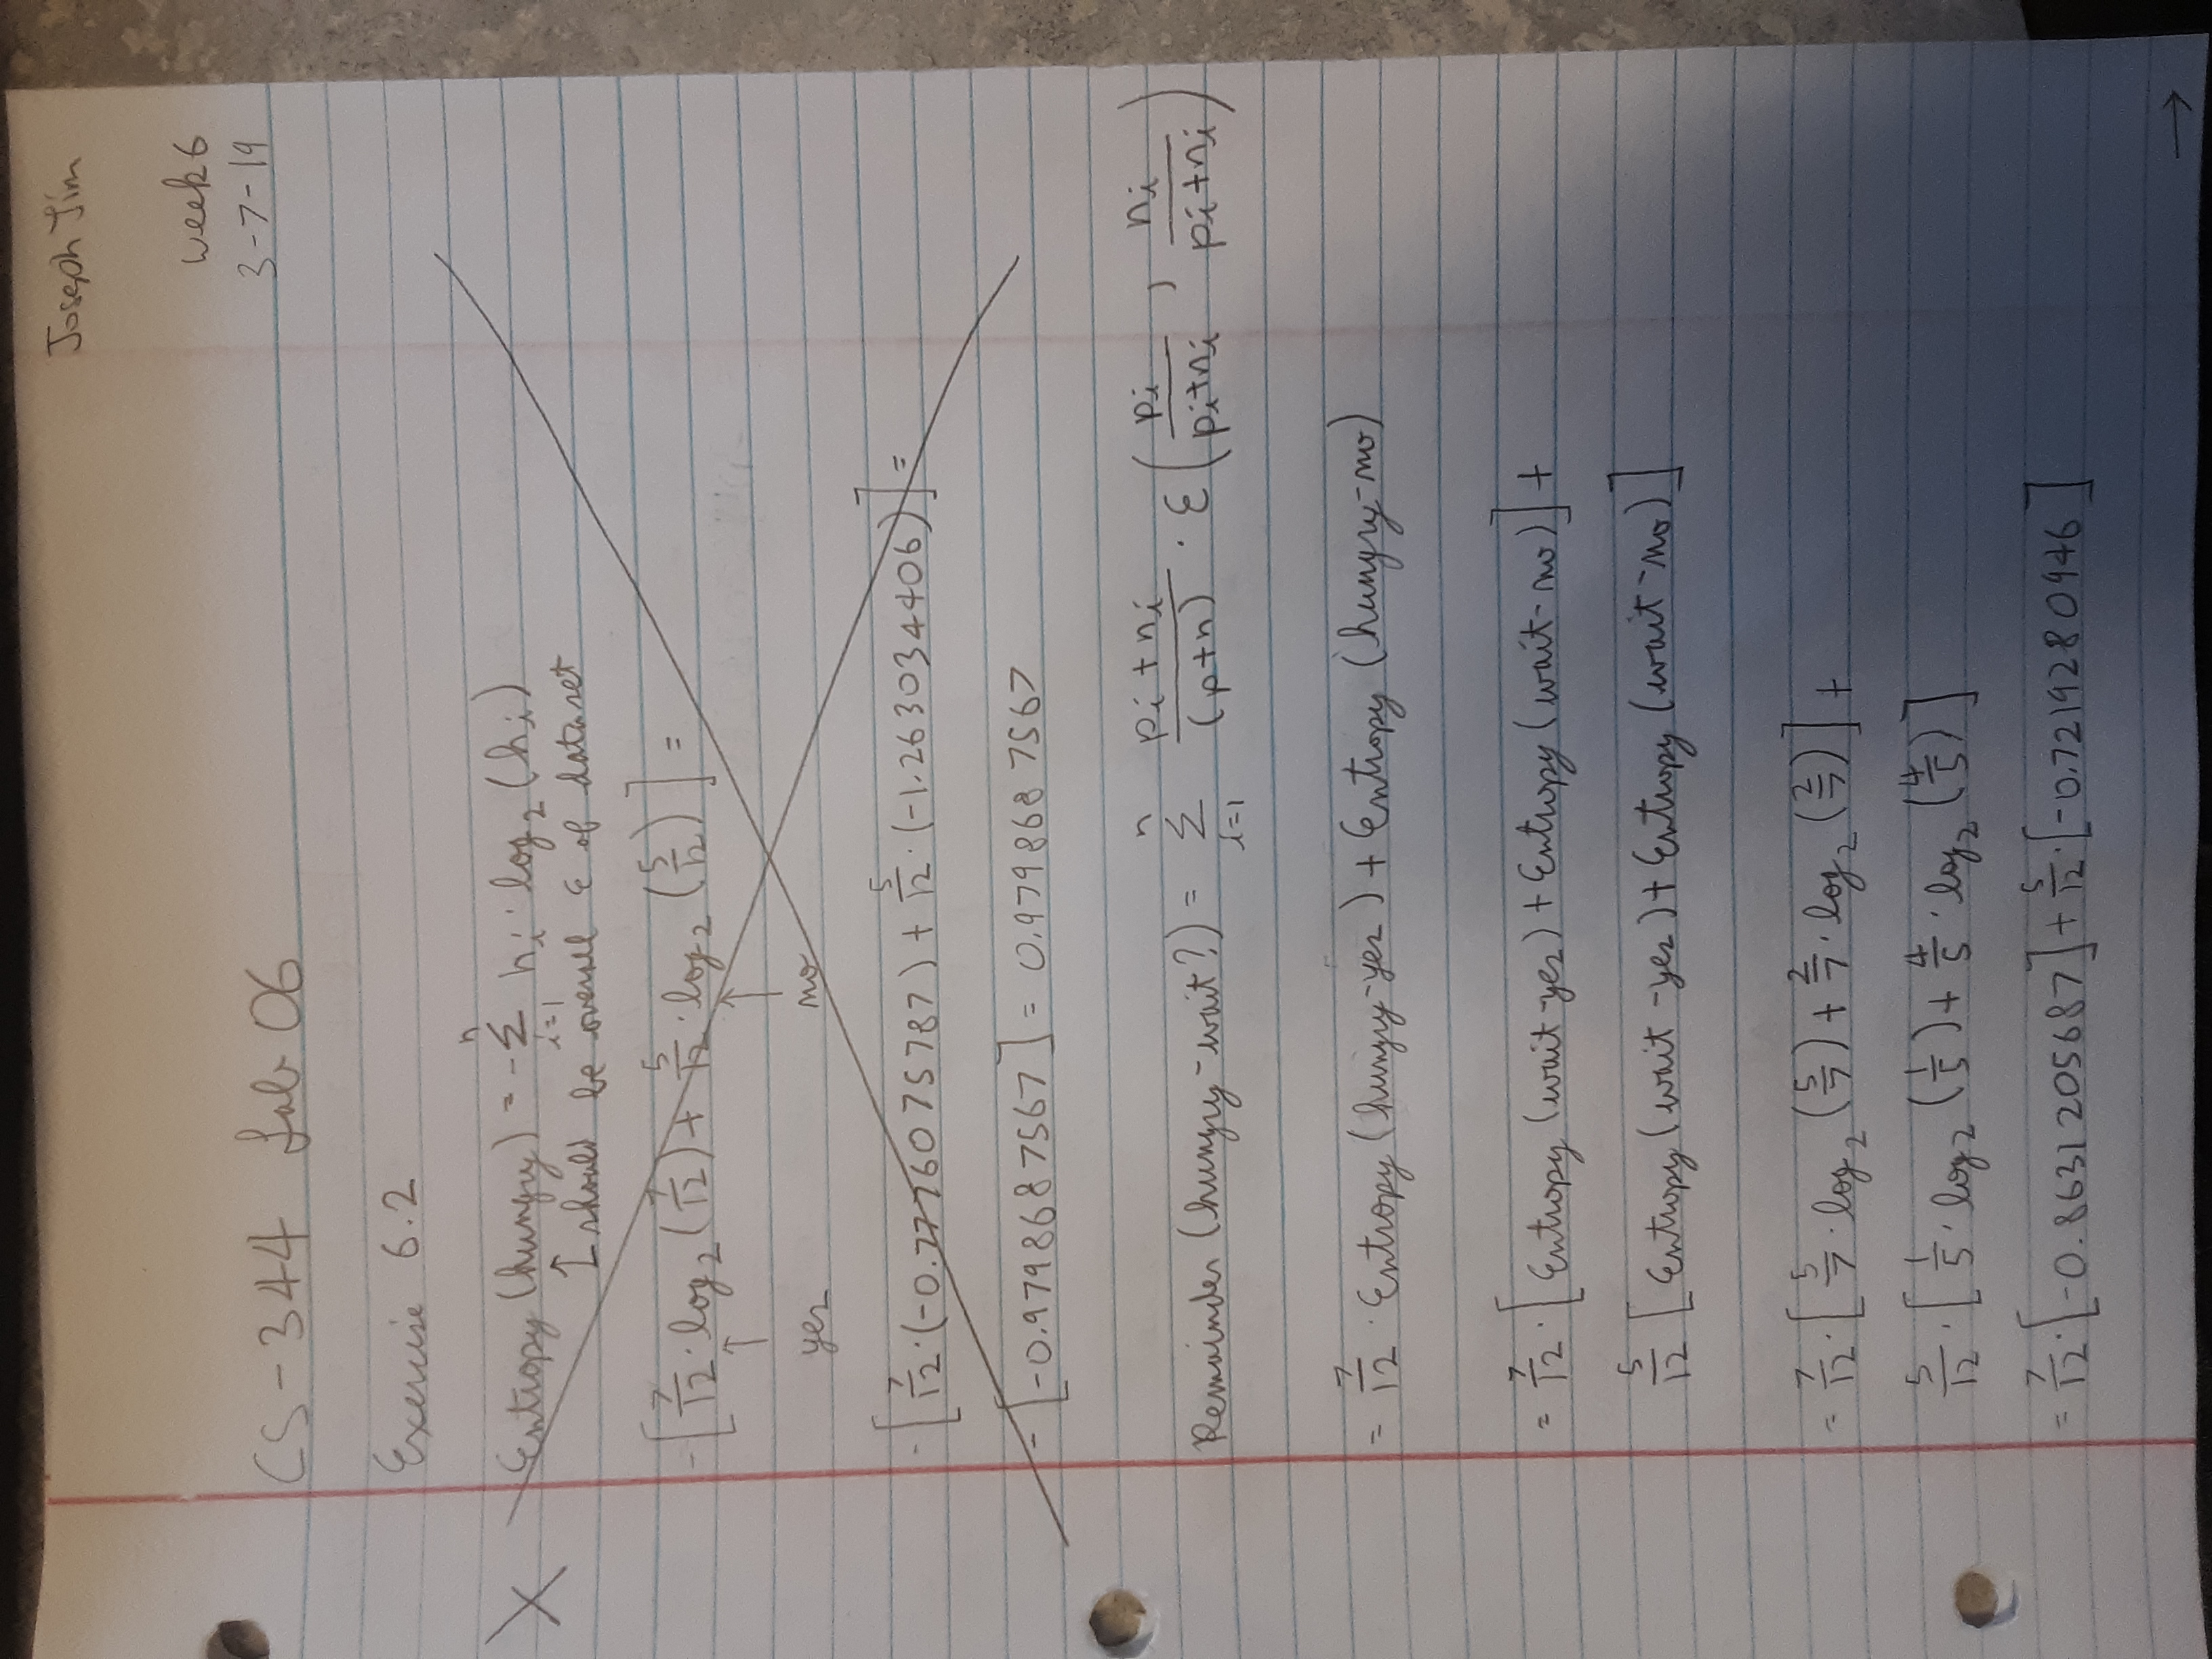 Joseph Jim
week 6
3-7-19
CS-344 Lab 06
Exercise 6.2
X Entropy (hungry) = -∑ i=1 n hᵢ · log₂ (hᵢ)
↑ should be overall ε of dataset
-[7/12 · log₂ (7/12) + 5/12 · log₂ (5/12)] =
↑ ↑
yes no
-[7/12 · (-0.7776075787) + 5/12 · (-1.263034406)] =
-[-0.9798687567] = 0.9798687567
Remainder (hungry-wait?) = ∑ i=1 n pᵢ+nᵢ/(p+n) · ε(pᵢ/pᵢ+nᵢ , nᵢ/pᵢ+nᵢ)
= 7/12 · Entropy (hungry-yes) + Entropy (hungry-no)
= 7/12 · [Entropy (wait-yes) + Entropy (wait-no)] +
5/12 [Entropy (wait-yes) + Entropy (wait-no)]
= 7/12 · [5/7 · log₂ (5/7) + 2/7 · log₂ (2/7)] +
5/12 · [1/5 · log₂ (1/5) + 4/5 · log₂ (4/5)]
= 7/12 · [-0.8631205687] + 5/12 · [-0.7219280946]
→